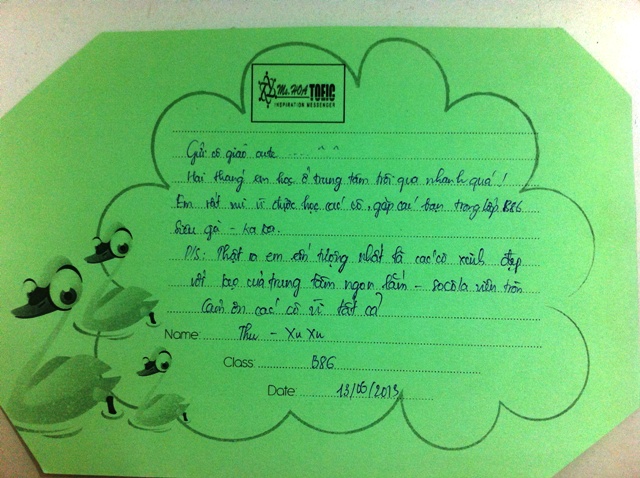 Ms. HOA TOEIC
INSPIRATION MESSENGER
Gửi cô giáo cute ..... ^^
Hai tháng em học ở trung tâm trôi qua nhanh quá!
Em rất vui vì được học các cô, gặp các bạn trong lớp B86
siêu quậy - ka ka.
P/S: Thật ra em ấn tượng nhất là các cô xinh đẹp
với kẹo của trung tâm ngon lắm - socola viên tròn
Cảm ơn các cô vì tất cả
Name: Thu - Xu Xu
Class: B86
Date: 13/06/2013